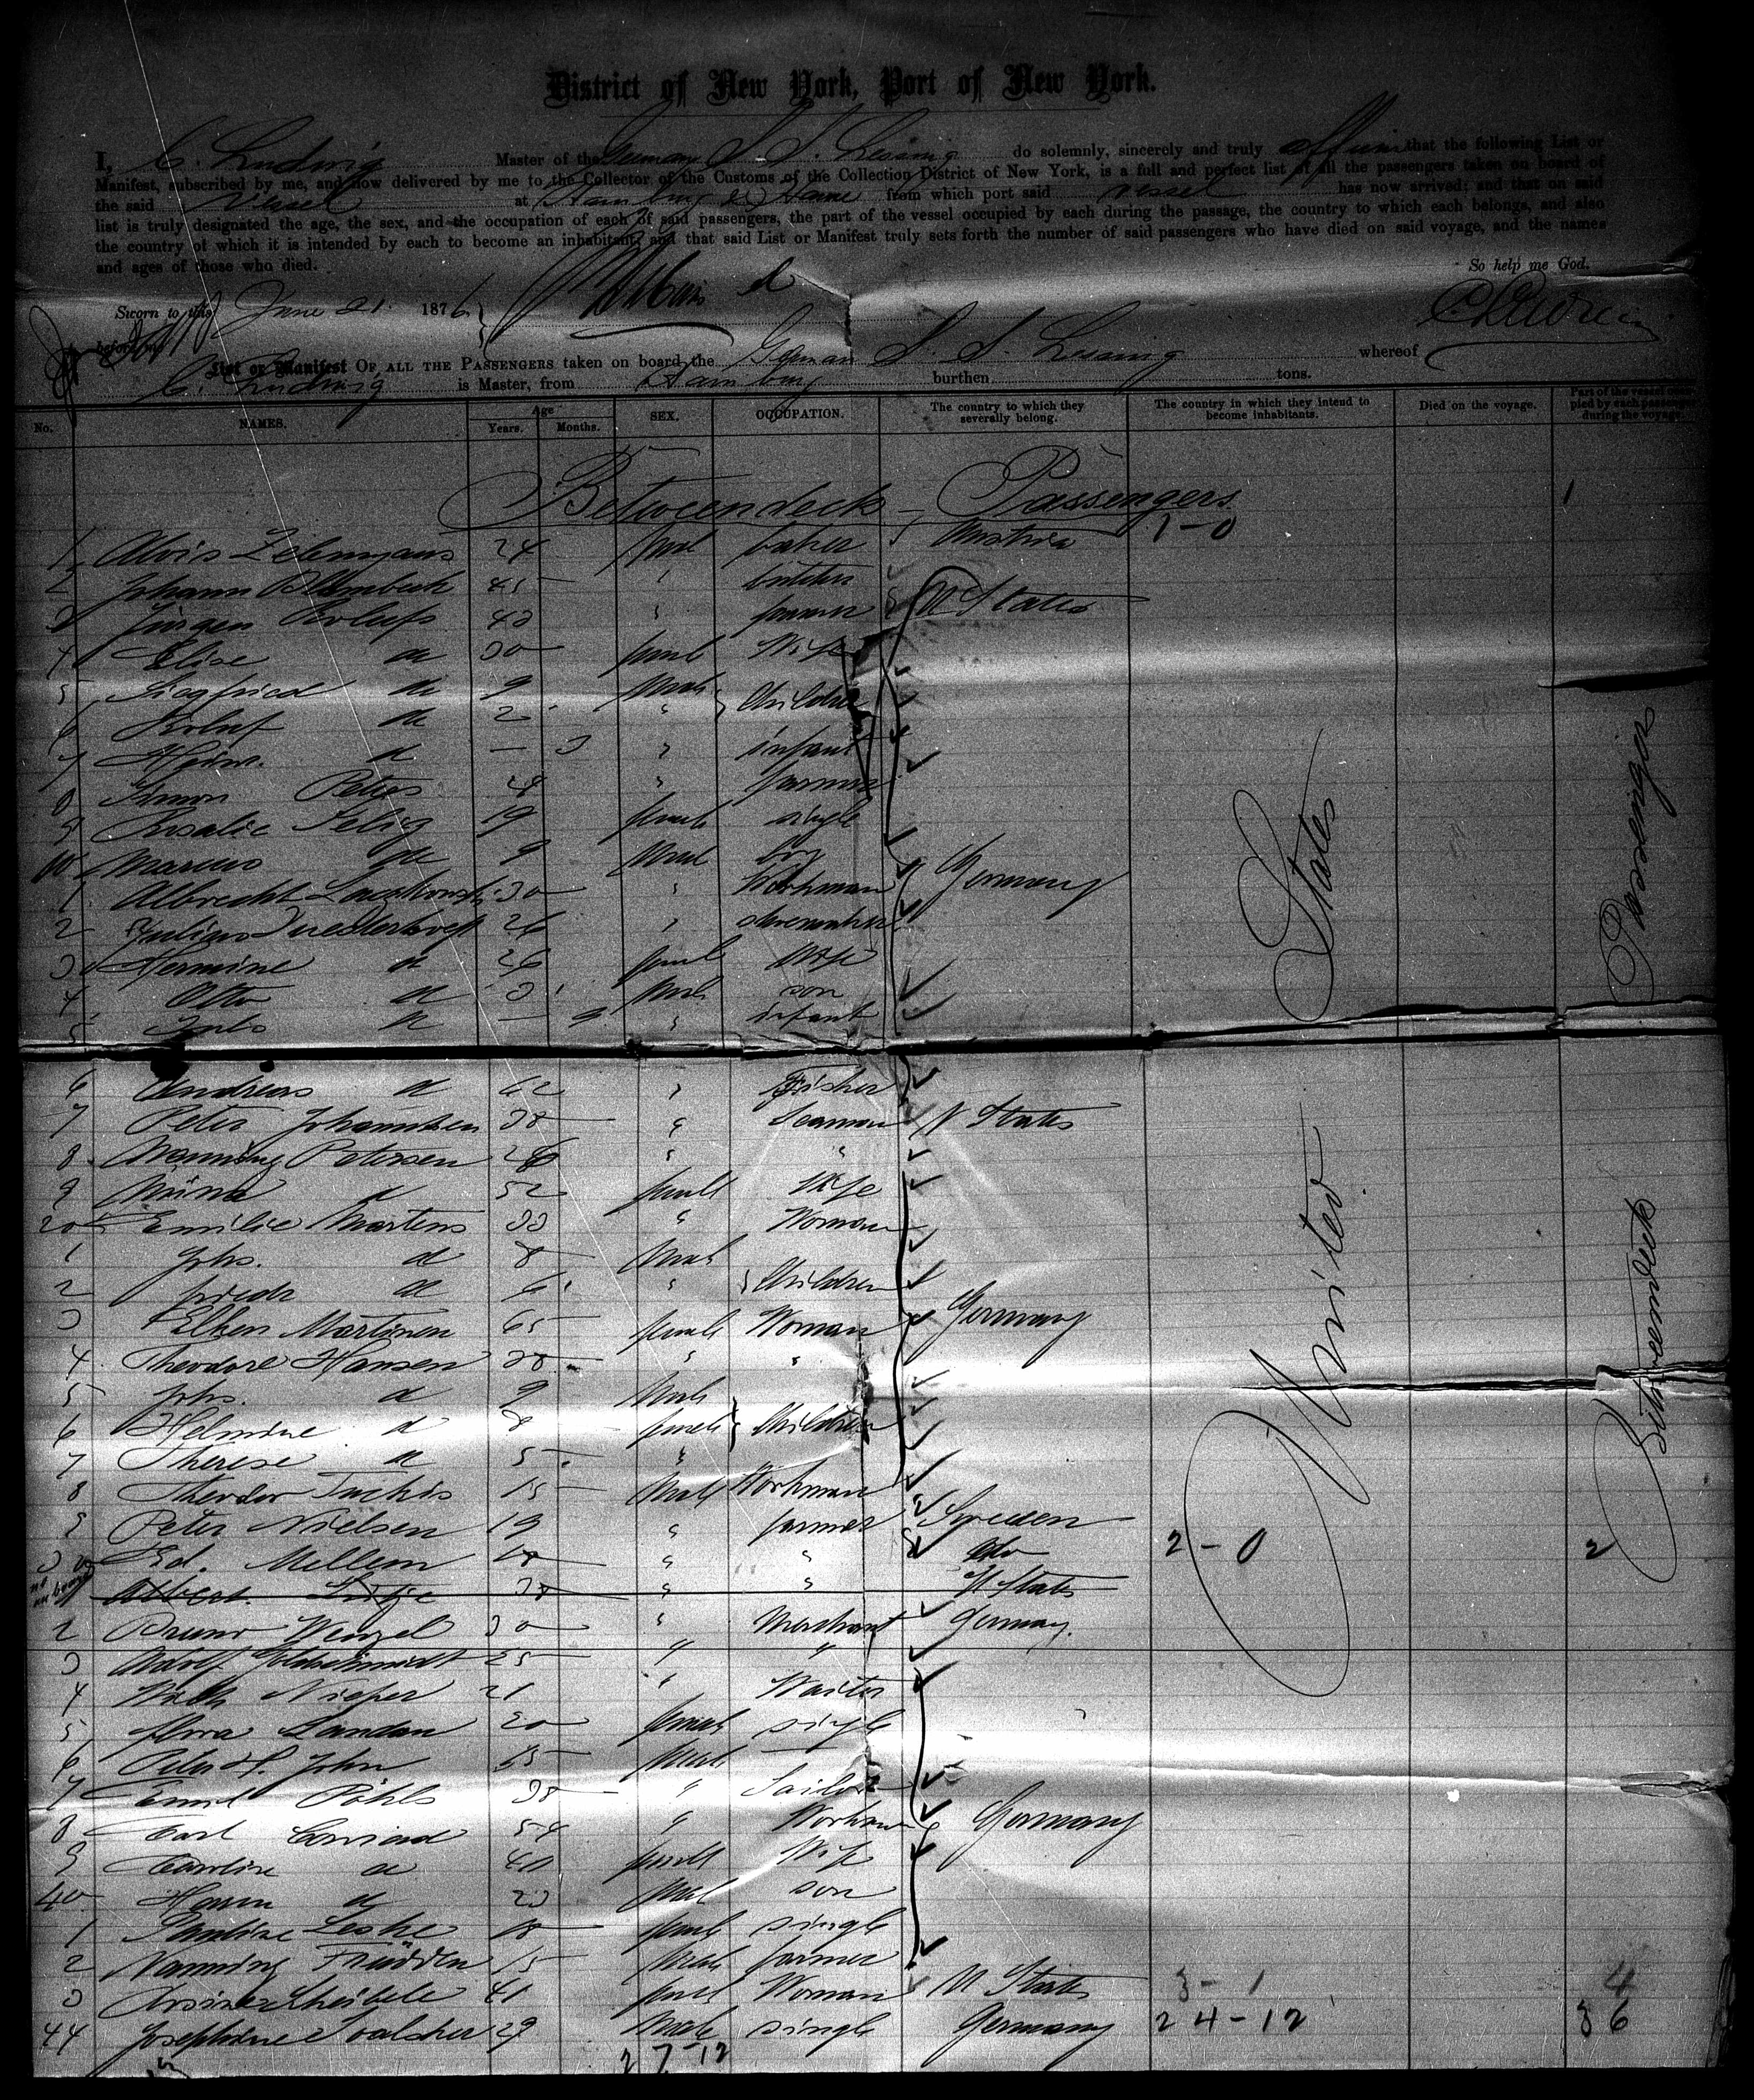 District of New York, Port of New York.
I, C. Ludwig Master of the German S. S. Lessing do solemnly, sincerely and truly affirm that the following List or
Manifest, subscribed by me, and now delivered by me to the Collector of the Customs of the Collection District of New York, is a full and perfect list of all the passengers taken on board of
the said vessel at Hamburg & Havre from which port said vessel has now arrived; and that on said
list is truly designated the age, the sex, and the occupation of each of said passengers, the part of the vessel occupied by each during the passage, the country to which each belongs, and also
the country of which it is intended by each to become an inhabitant; and that said List or Manifest truly sets forth the number of said passengers who have died on said voyage, and the names
and ages of those who died.
So help me God.
Sworn to this June 21. 1876
before me
List or Manifest OF ALL THE PASSENGERS taken on board the German S. S. Lessing whereof
C. Ludwig is Master, from Hamburg burthen tons.
No. NAMES. Age Years. Months. SEX. OCCUPATION. The country to which they severally belong. The country in which they intend to become inhabitants. Died on the voyage. Part of the vessel occupied by each passenger during the voyage.
Betweendeck - Passengers
1 24 Male baker Austria 1-0
2 Johann 45 " butcher
3 Jürgen Roleufs 40 " farmer U States
4 Elise do 30 female Wife
5 Siegfried do 9 Male Children
6 Roleuf do 2 "
7 Heinr. do — 3 " infant
8 Simon Peters " farmer
9 Rosalie Selig 19 female single
10 Marcus do 9 Male boy Germany
1 Albrecht 30 " Workman
2 Julius 26 " shoemaker
3 Hermine do 26 female Wife
4 Otto do 3 Male son
5 do — 9 " infant
6 Andreas do 62 " Fisher
7 Peter Johannsen 38 " Seaman U States
8 Nanning Petersen 26 " "
9 do 52 female Wife
20 Emilie Martens 33 " Woman
1 Johs. do 8 Male
2 Friedr do 6 " Children
3 Elken Martinen 65 female Woman Germany
4 Theodore Hansen 38 " "
5 Johs. do 9 Male
6 Helmine do 8 female Children
7 Therese do 5 "
8 Theodor 15 Male Workman
9 Peter Nielsen 19 " farmer Sweden
30 Ed. Mellem " " do 2-0 2
Albert 38 " " U States
2 Bruno Wenzel 30 " Merchant Germany.
3 Adolf Goldschmidt 25 " "
4 Nieper 21 " Waiter
5 Landau 20 female single
6 Peter H. John Male —
7 Emil Pöhls 38 " Sailor
8 Carl Conrad 54 " Workman Germany
9 Caroline do 40 female Wife
40 do 23 Male son
1 Pauline Leske 18 female single
2 Nanning Früdden 15 Male farmer
3 41 female Woman U States 3-1 4
44 Josephine 29 Male single Germany 24-12 36
27-12
United States
Betweendeck Passenger